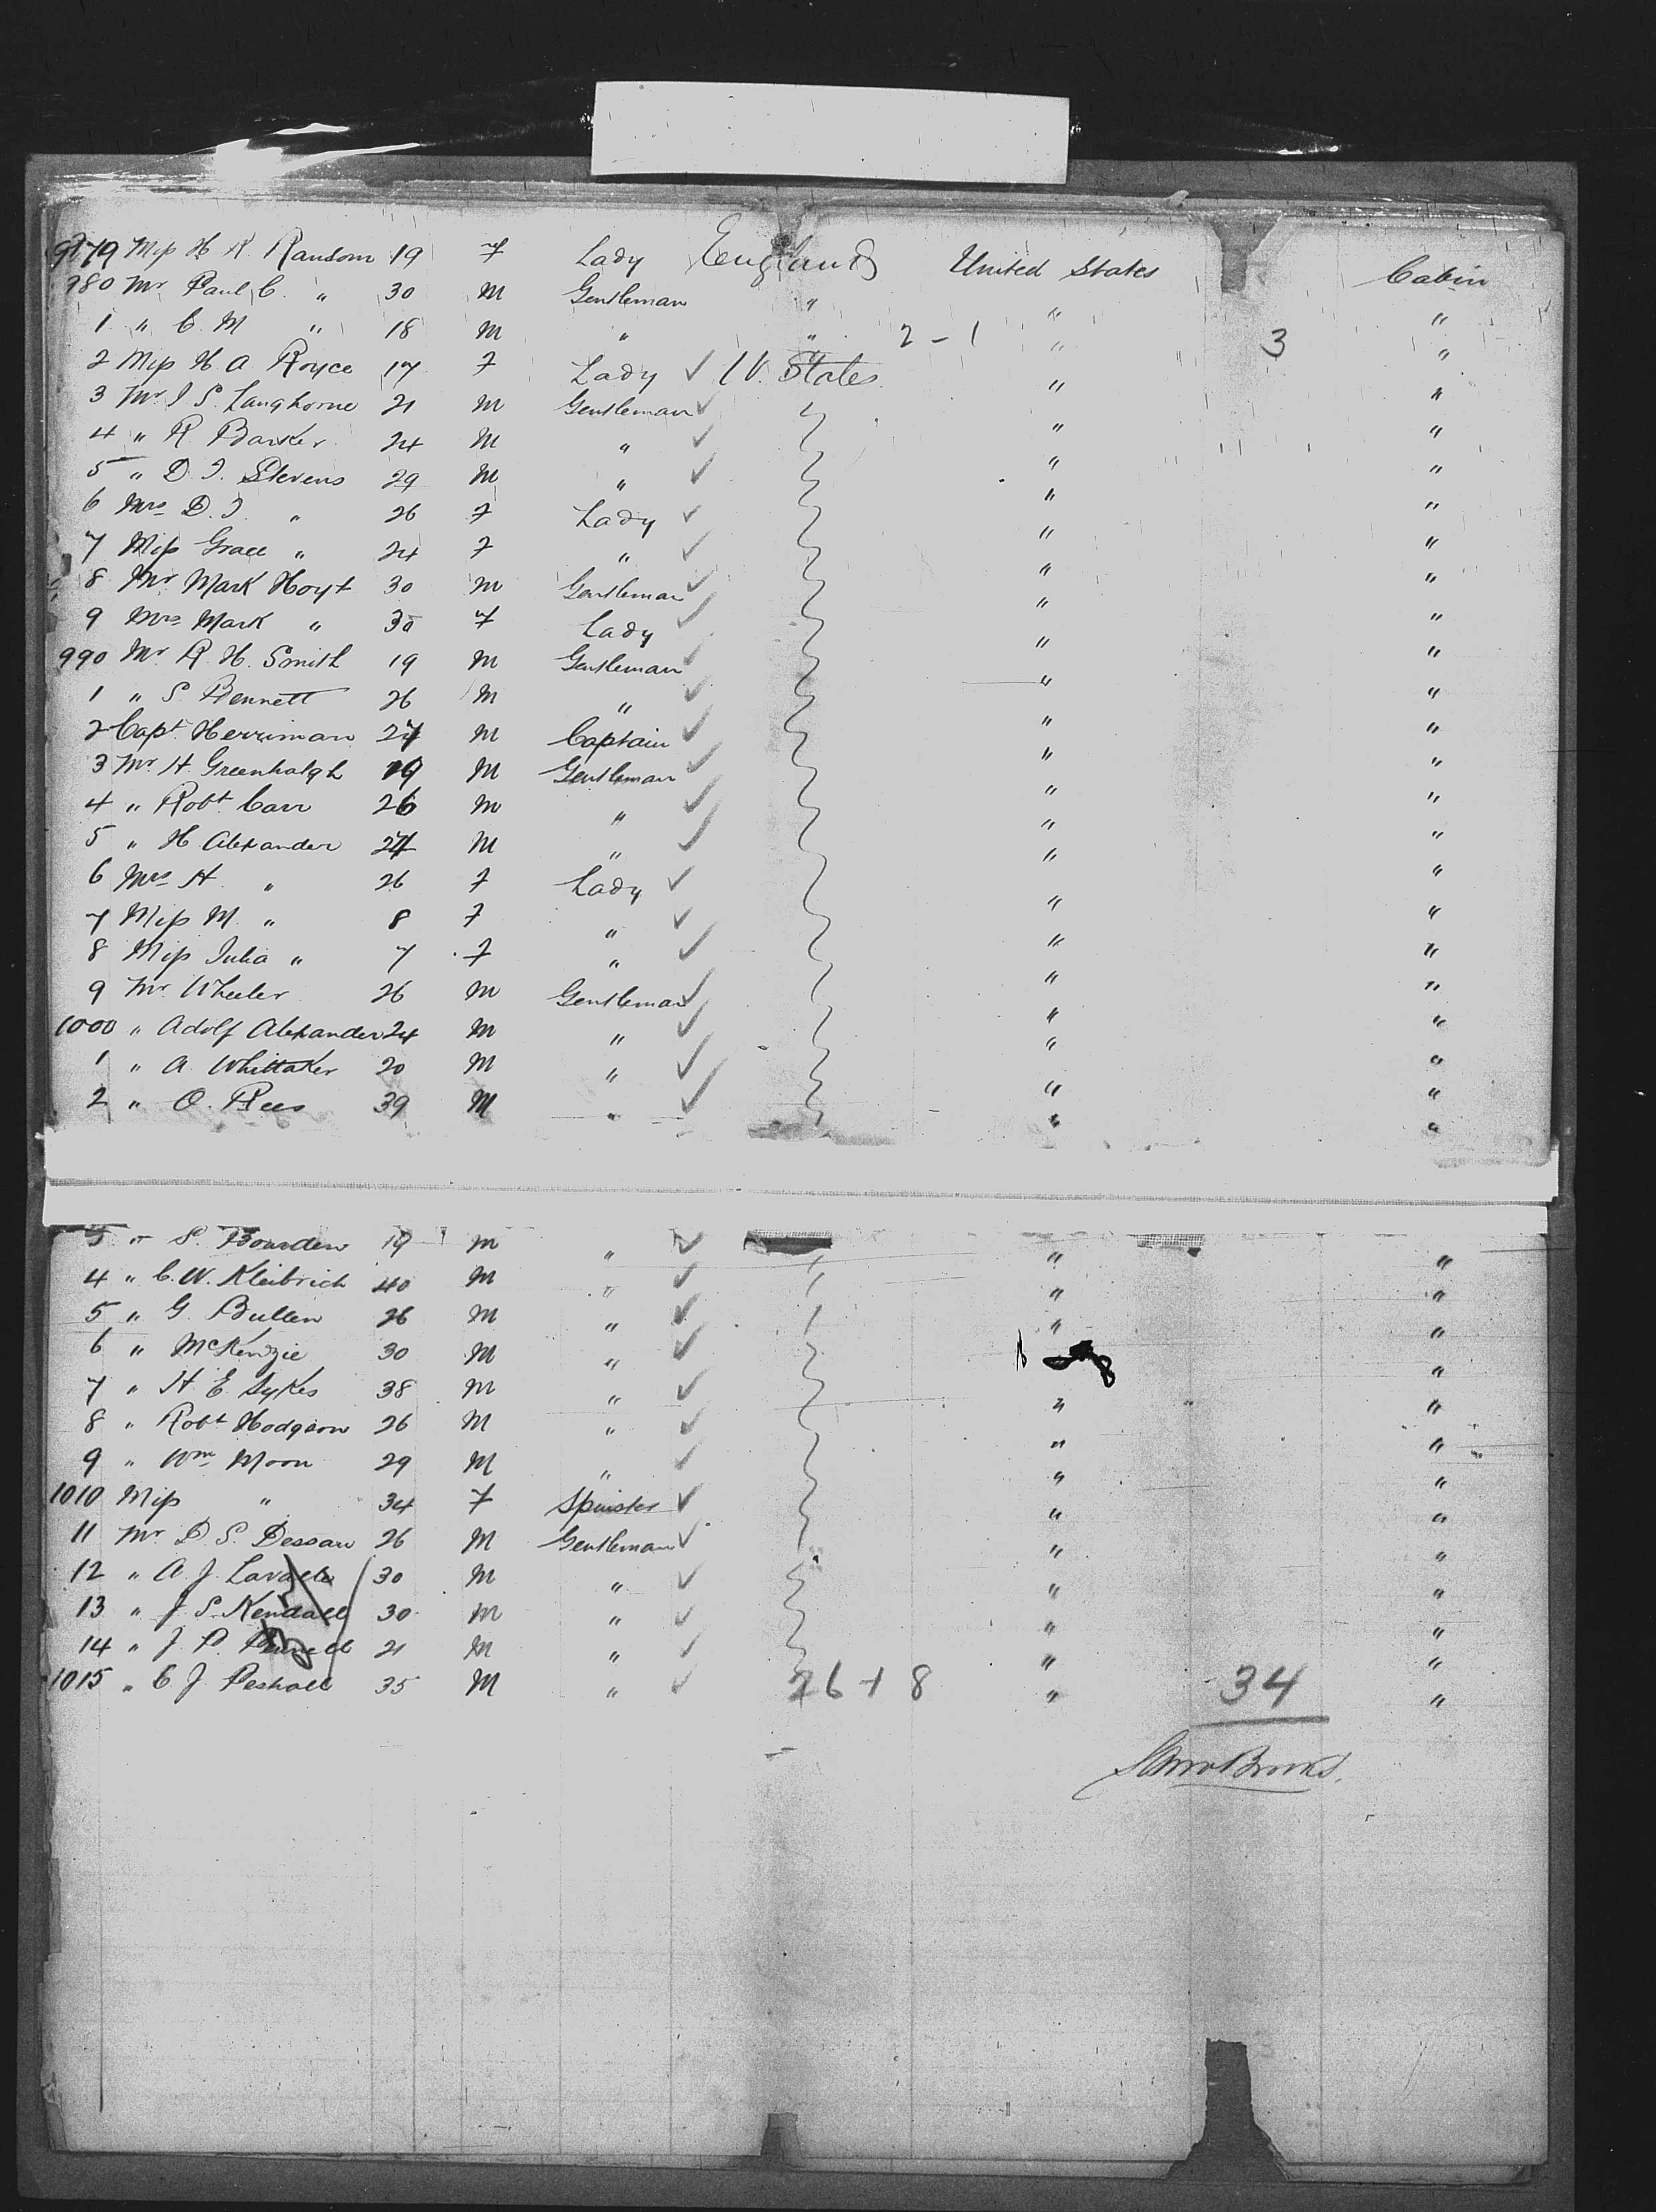 979 Miss H R. Ransom 19 F Lady England United States Cabin
980 Mr Paul C. " 30 M Gentleman " " "
1 " C. M " 18 M " " 2 - 1 " 3 "
2 Miss H A. Royce 17 F Lady ✓ U. States " "
3 Mr. I S. Langhorne 21 M Gentleman ✓ " "
4 " R Barker 24 M " ✓ " "
5 " D. I. Stevens 29 M " ✓ " "
6 Mrs D. I. " 26 F Lady ✓ " "
7 Miss Grace " 24 F " ✓ " "
8 Mr. Mark Hoyt 30 M Gentleman ✓ " "
9 Mrs Mark " 30 F Lady ✓ " "
990 Mr R. H. Smith 19 M Gentleman ✓ " "
1 " S Bennett 26 M " ✓ " "
2 Capt. Herriman 27 M Captain ✓ " "
3 Mr. H. Greenhalgh 19 M Gentleman ✓ " "
4 " Robt Carr 26 M " ✓ " "
5 " H Alexander 24 M " ✓ " "
6 Mrs H " 26 F Lady ✓ " "
7 Miss M. " 8 F " ✓ " "
8 Miss Julia " 7 F " ✓ " "
9 Mr. Wheeler 26 M Gentleman ✓ " "
1000 " Adolf Alexander 24 M " ✓ " "
1 " A Whittaker 20 M " ✓ " "
2 " O. Rees 39 M " ✓ " "
3 " S. Bourden 19 M " ✓ " "
4 " C. W. Kleibrich 40 M " ✓ " "
5 " G. Bullen 26 M " ✓ " "
6 " McKenzie 30 M " ✓ "
7 " H E Sykes 38 M " ✓ " "
8 " Robt Hodgson 26 M " ✓ " "
9 " Wm Moon 29 M " ✓ " "
1010 Miss " 34 F Spinster ✓ " "
11 Mr. D S. Dessau 26 M Gentleman ✓ " "
12 " A. J. 30 M " ✓ " "
13 " J S. Kendall 30 M " ✓ " "
14 " J. P. 21 M " ✓ " "
1015 " C J. Peshall 35 M " ✓ 26 + 8 " 34 "